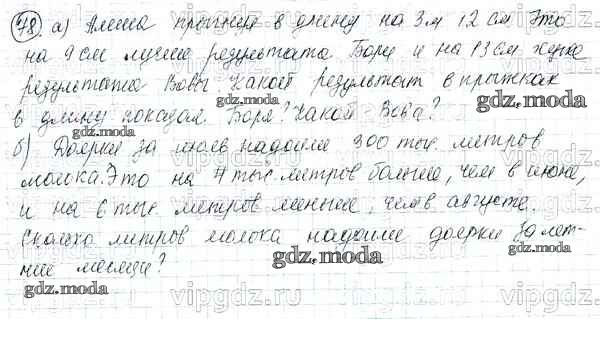 78) а) Алеша прыгнул в длину на 3 м 12 см. Это
на 9 см лучше результата Бори и на 13 см хуже
результата Вовы. Какой результат в прыжках
в длину показал Боря? Какой Вова?
б) Доярки за июль надоили 300 тыс. литров
молока. Это на 7 тыс. литров больше, чем в июне,
и на 6 тыс. литров меньше, чем в августе.
Сколько литров молока надоили доярки за лет-
ние месяцы?
gdz.moda
gdz.moda
gdz.moda
gdz.moda
gdz.moda
gdz.moda
gdz.moda
vipgdz.ru
vipgdz.ru
vipgdz.ru